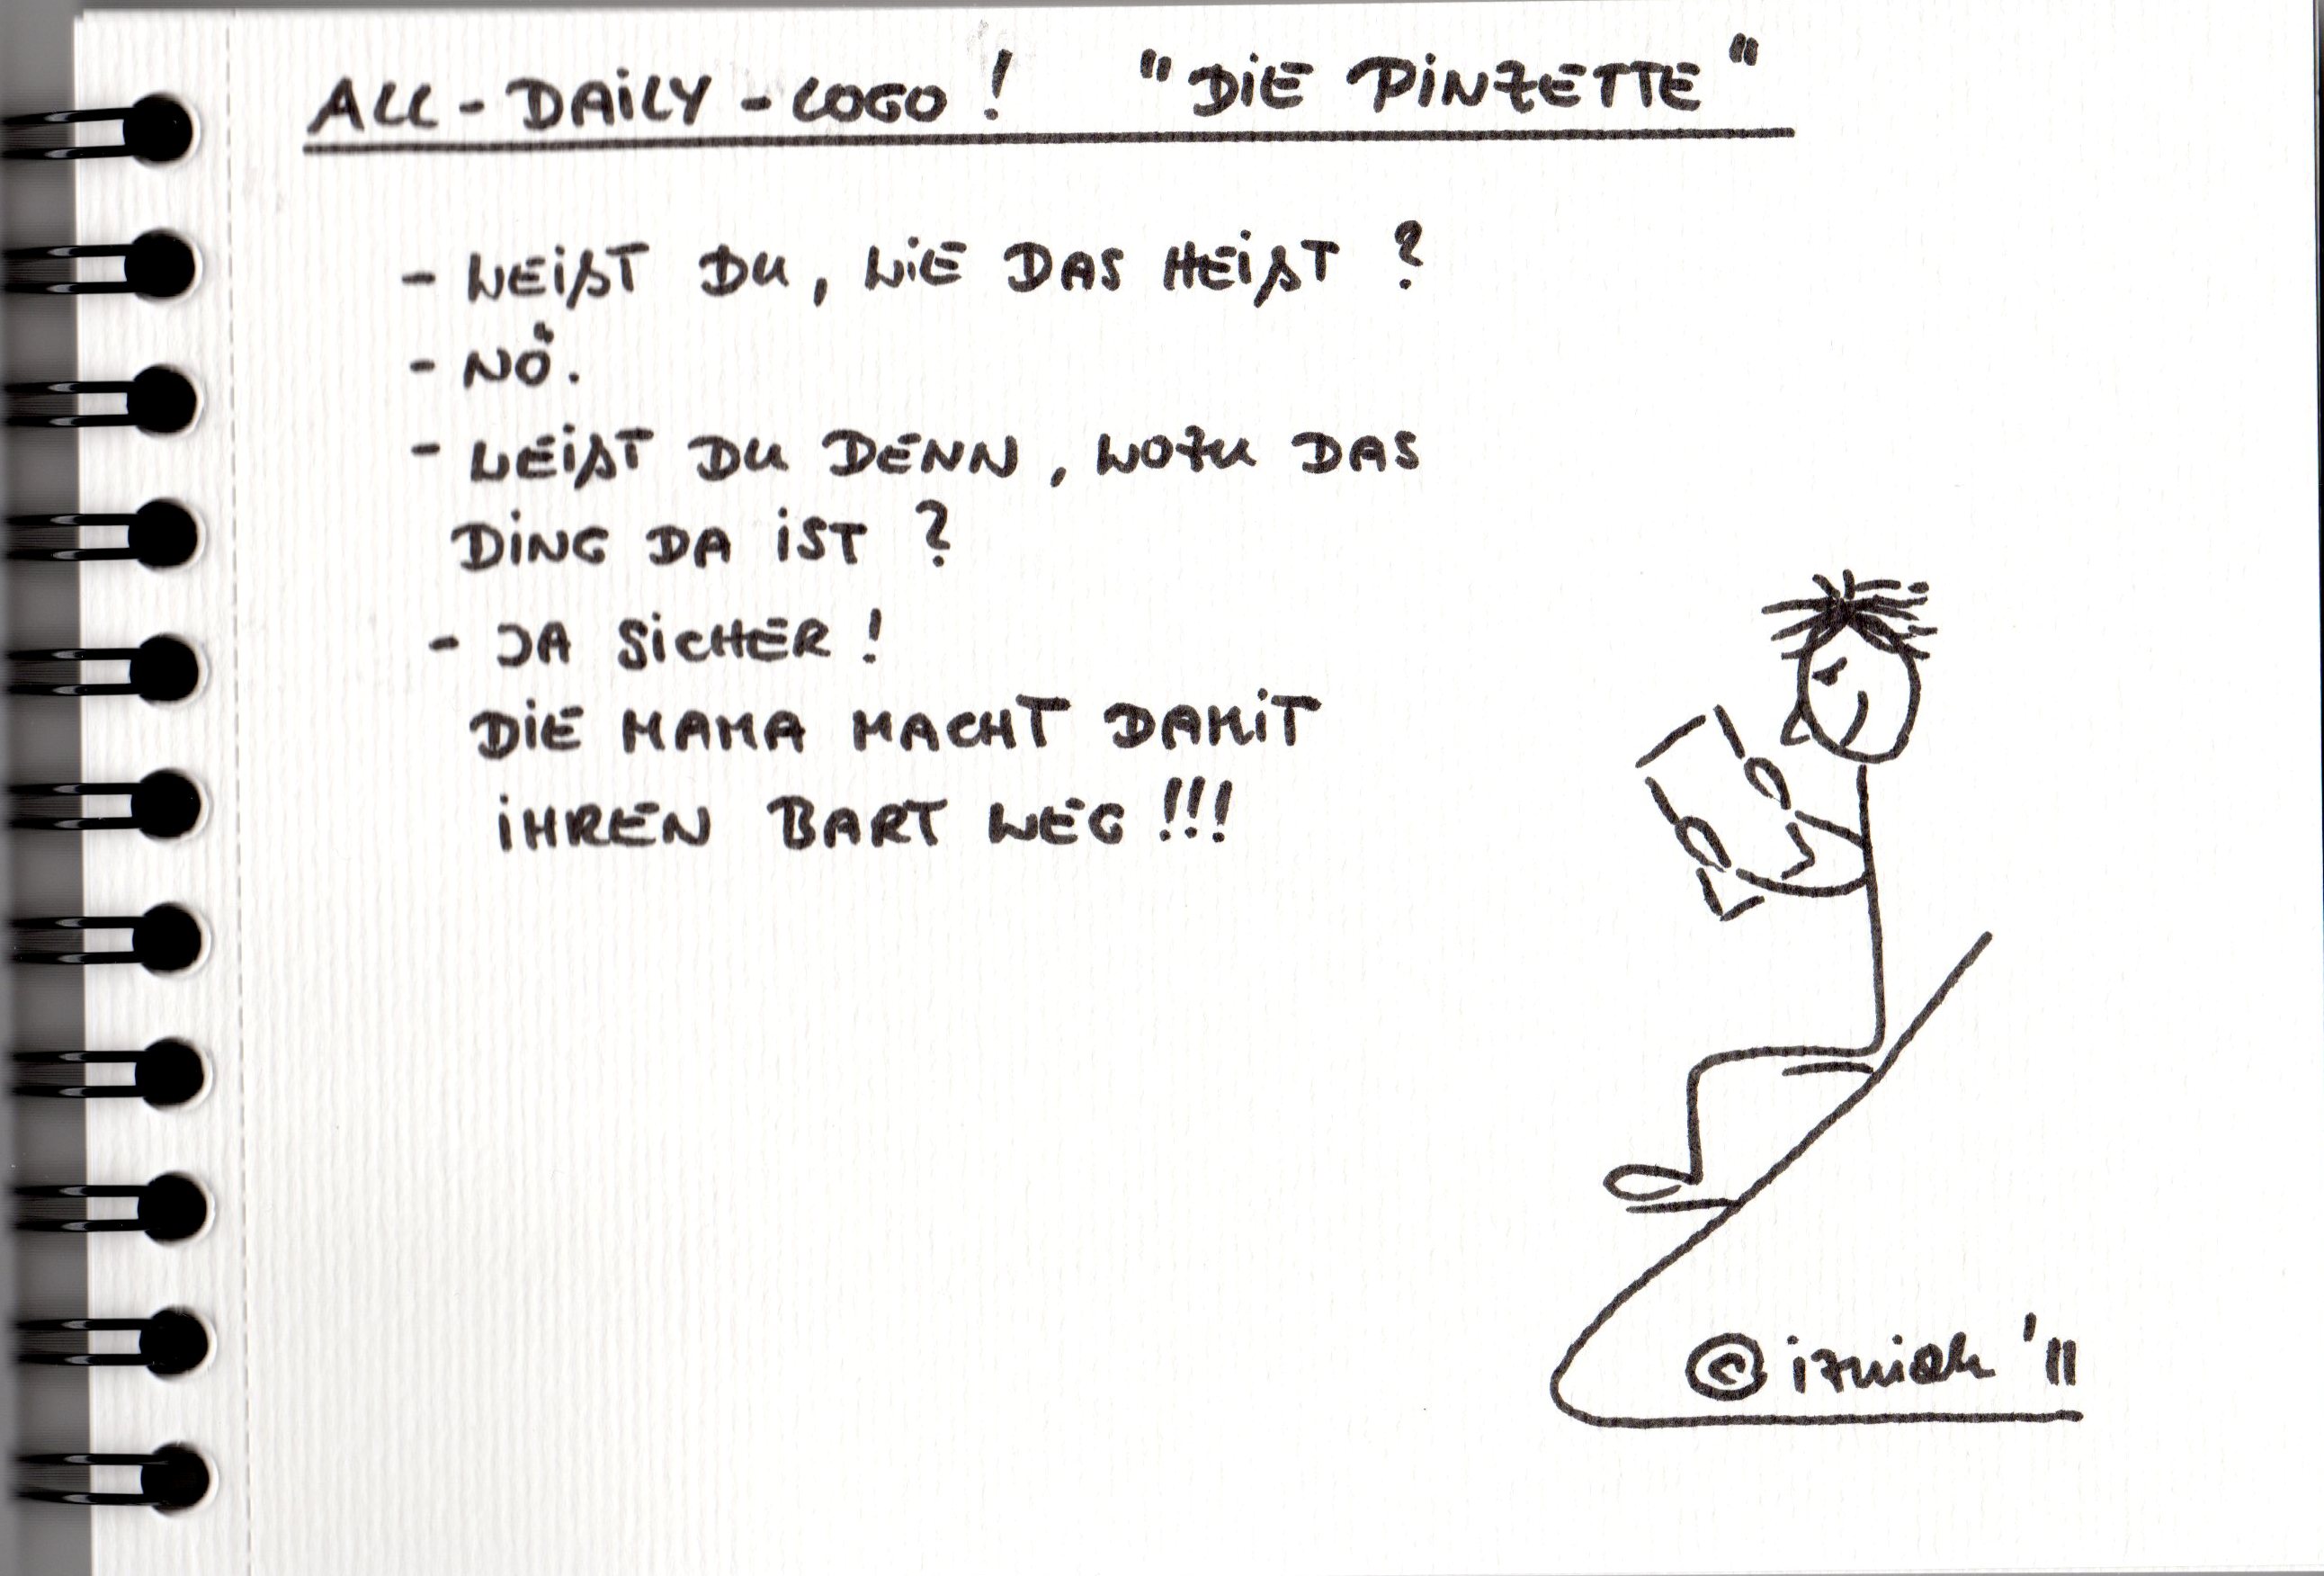 ALL-DAILY-LOGO! "DIE PINZETTE"
- WEIßT DU, WIE DAS HEIßT?
- NÖ.
- WEIßT DU DENN, WOZU DAS
DING DA IST?
- JA SICHER!
DIE MAMA MACHT DAMIT
IHREN BART WEG!!!
© '11